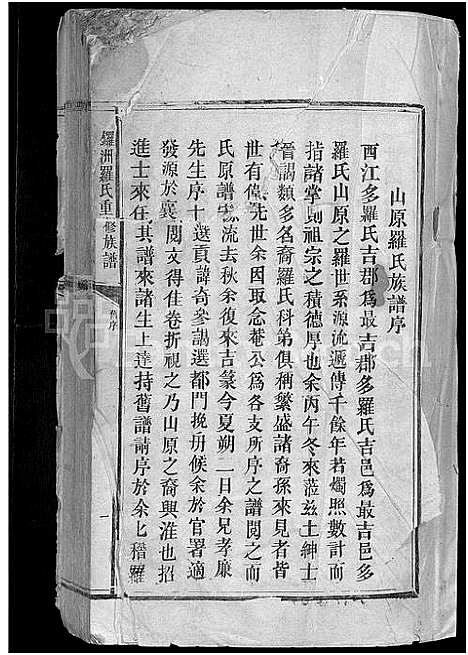 山原羅氏族譜序
西江多羅氏吉郡爲最吉郡多羅氏吉邑爲最吉邑多
羅氏山原之羅世系源流遞傳千餘年若燭照數計而
指諸掌則祖宗之積德厚也余丙午冬來蒞茲土紳士
晉謁類多名裔羅氏科第俱稱繁盛諸裔孫來見者皆
世有偉先世余因取念菴公爲各支所序之譜閱之而
氏原譜源流去秋余復來吉篆今夏朔一日余兄孝廉
先生序十選頁諱奇參謁選都門挽册候余於官署適
發源於襄閱文得佳卷折視之乃山原之裔興淮也招
進士來在其譜來諸生上達持舊譜請序於余七稽羅
羅洲羅氏重修族譜
舊序
一